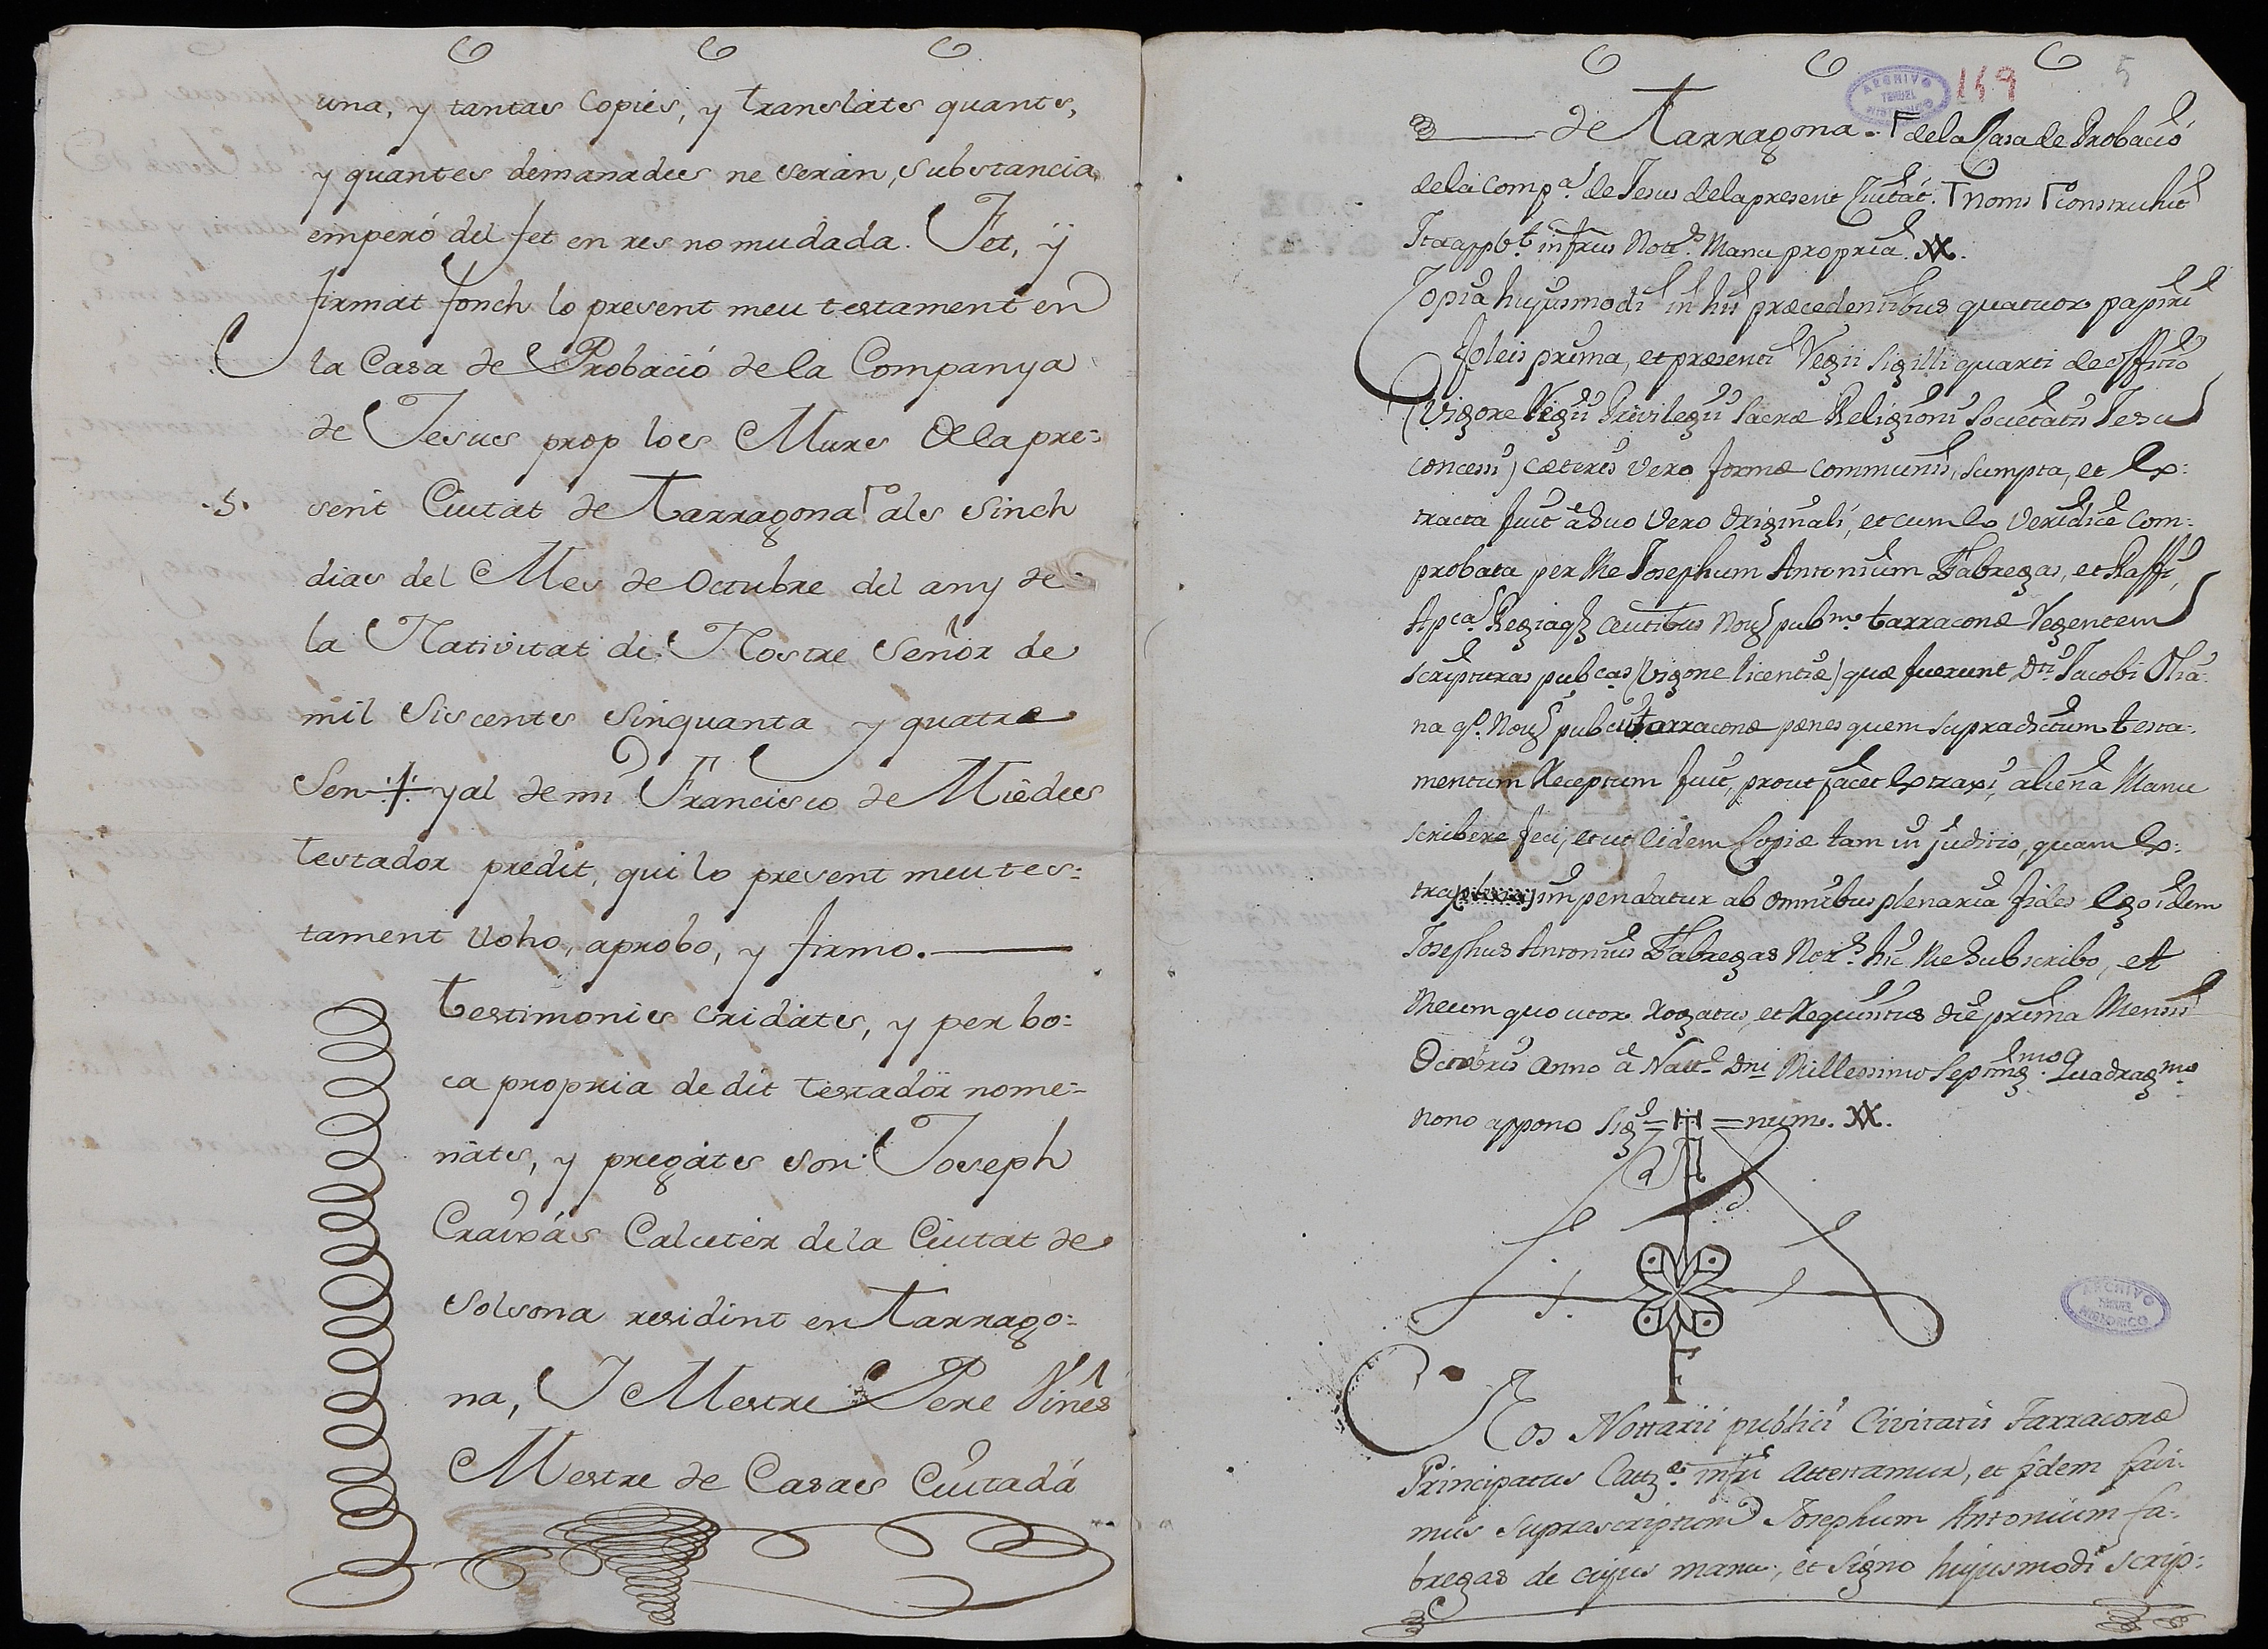 una, y tantas Copies, y translats quants,
y quantes demanades ne seran, substancia
emperó del fet en res no mudada. Fet, ÿ
firmat fonch lo present meu testament en
la Casa de Probació de la Companya
de Jesus prop los Murs de la pre=
.5. sent Ciutat de Tarragona als sinch
dias del Mes de Octubre del any de
la Nativitat de Nostre Señor de
mil siscents sinquanta y quatre
Sen yal de mi Francisco de Miedes
testador predit, qui lo present meu tes=
tament lloho, aprobo, y firmo.
testimonis cridats, y per bo=
ca propria de dit testador nome=
nats, y pregats son Joseph
Calceter de la Ciutat de
Solsona residint en Tarrago=
na, I Mestre Pere Viñes
Mestre de Cases Ciutadá
ARCHIVO TERUEL HISTORICO 149 5
de Tarragona. de la Casa de Probació
de la Comp.ª de Jesus de la present Ciutat. noms construhit
Ita app.t infrus Not.s Manu propria.
Copia hujusmodi in his præcedentibus quatuor papiri
foleis prima, et præsenti Regii Sigilli quarti de officio
(vigore Regii Privilegii Sacræ Religionis Societatis Jesu
concessi) cæteris vero formæ communis, sumpta, et ex=
tracta fuit à suo vero originali, et cum eo veridice com=
probata per Me Josephum Antonium Fabregas, et Raffi,
Apca. Regiaq auctbus Not pubm. tarraconæ Regentem
scripturas pubcas (vigore licentiæ) quæ fuerunt Dti. Jacobi
na q.º Not pubci tarraconæ pænes quem supradictum testa=
mentum Receptum fuit, prout jacet extraxi, aliena Manu
scribere feci, et ut eidem Copiæ tam in judicio, quam ex=
tra impendatur ab omnibus plenaria fides Ego idem
Josephus Antonius Fabregas Not.s hic Me Subscribo, et
Meum quo utor rogatus, et Requisitus die prima Mensis
Octobris Anno à Nat.e Dni Millessimo Septing.mo Quadrag.mo
nono appono Sig= =num.
Nos Nottarii publici Civitatis Tarraconæ
Principatus Catt.æ infri Attestamur, et fidem faci=
mus suprascriptum Josephum Antonium Fa=
bregas de cujus manu, et Signo hujusmodi scrip=
ARCHIVO TERUEL HISTORICO